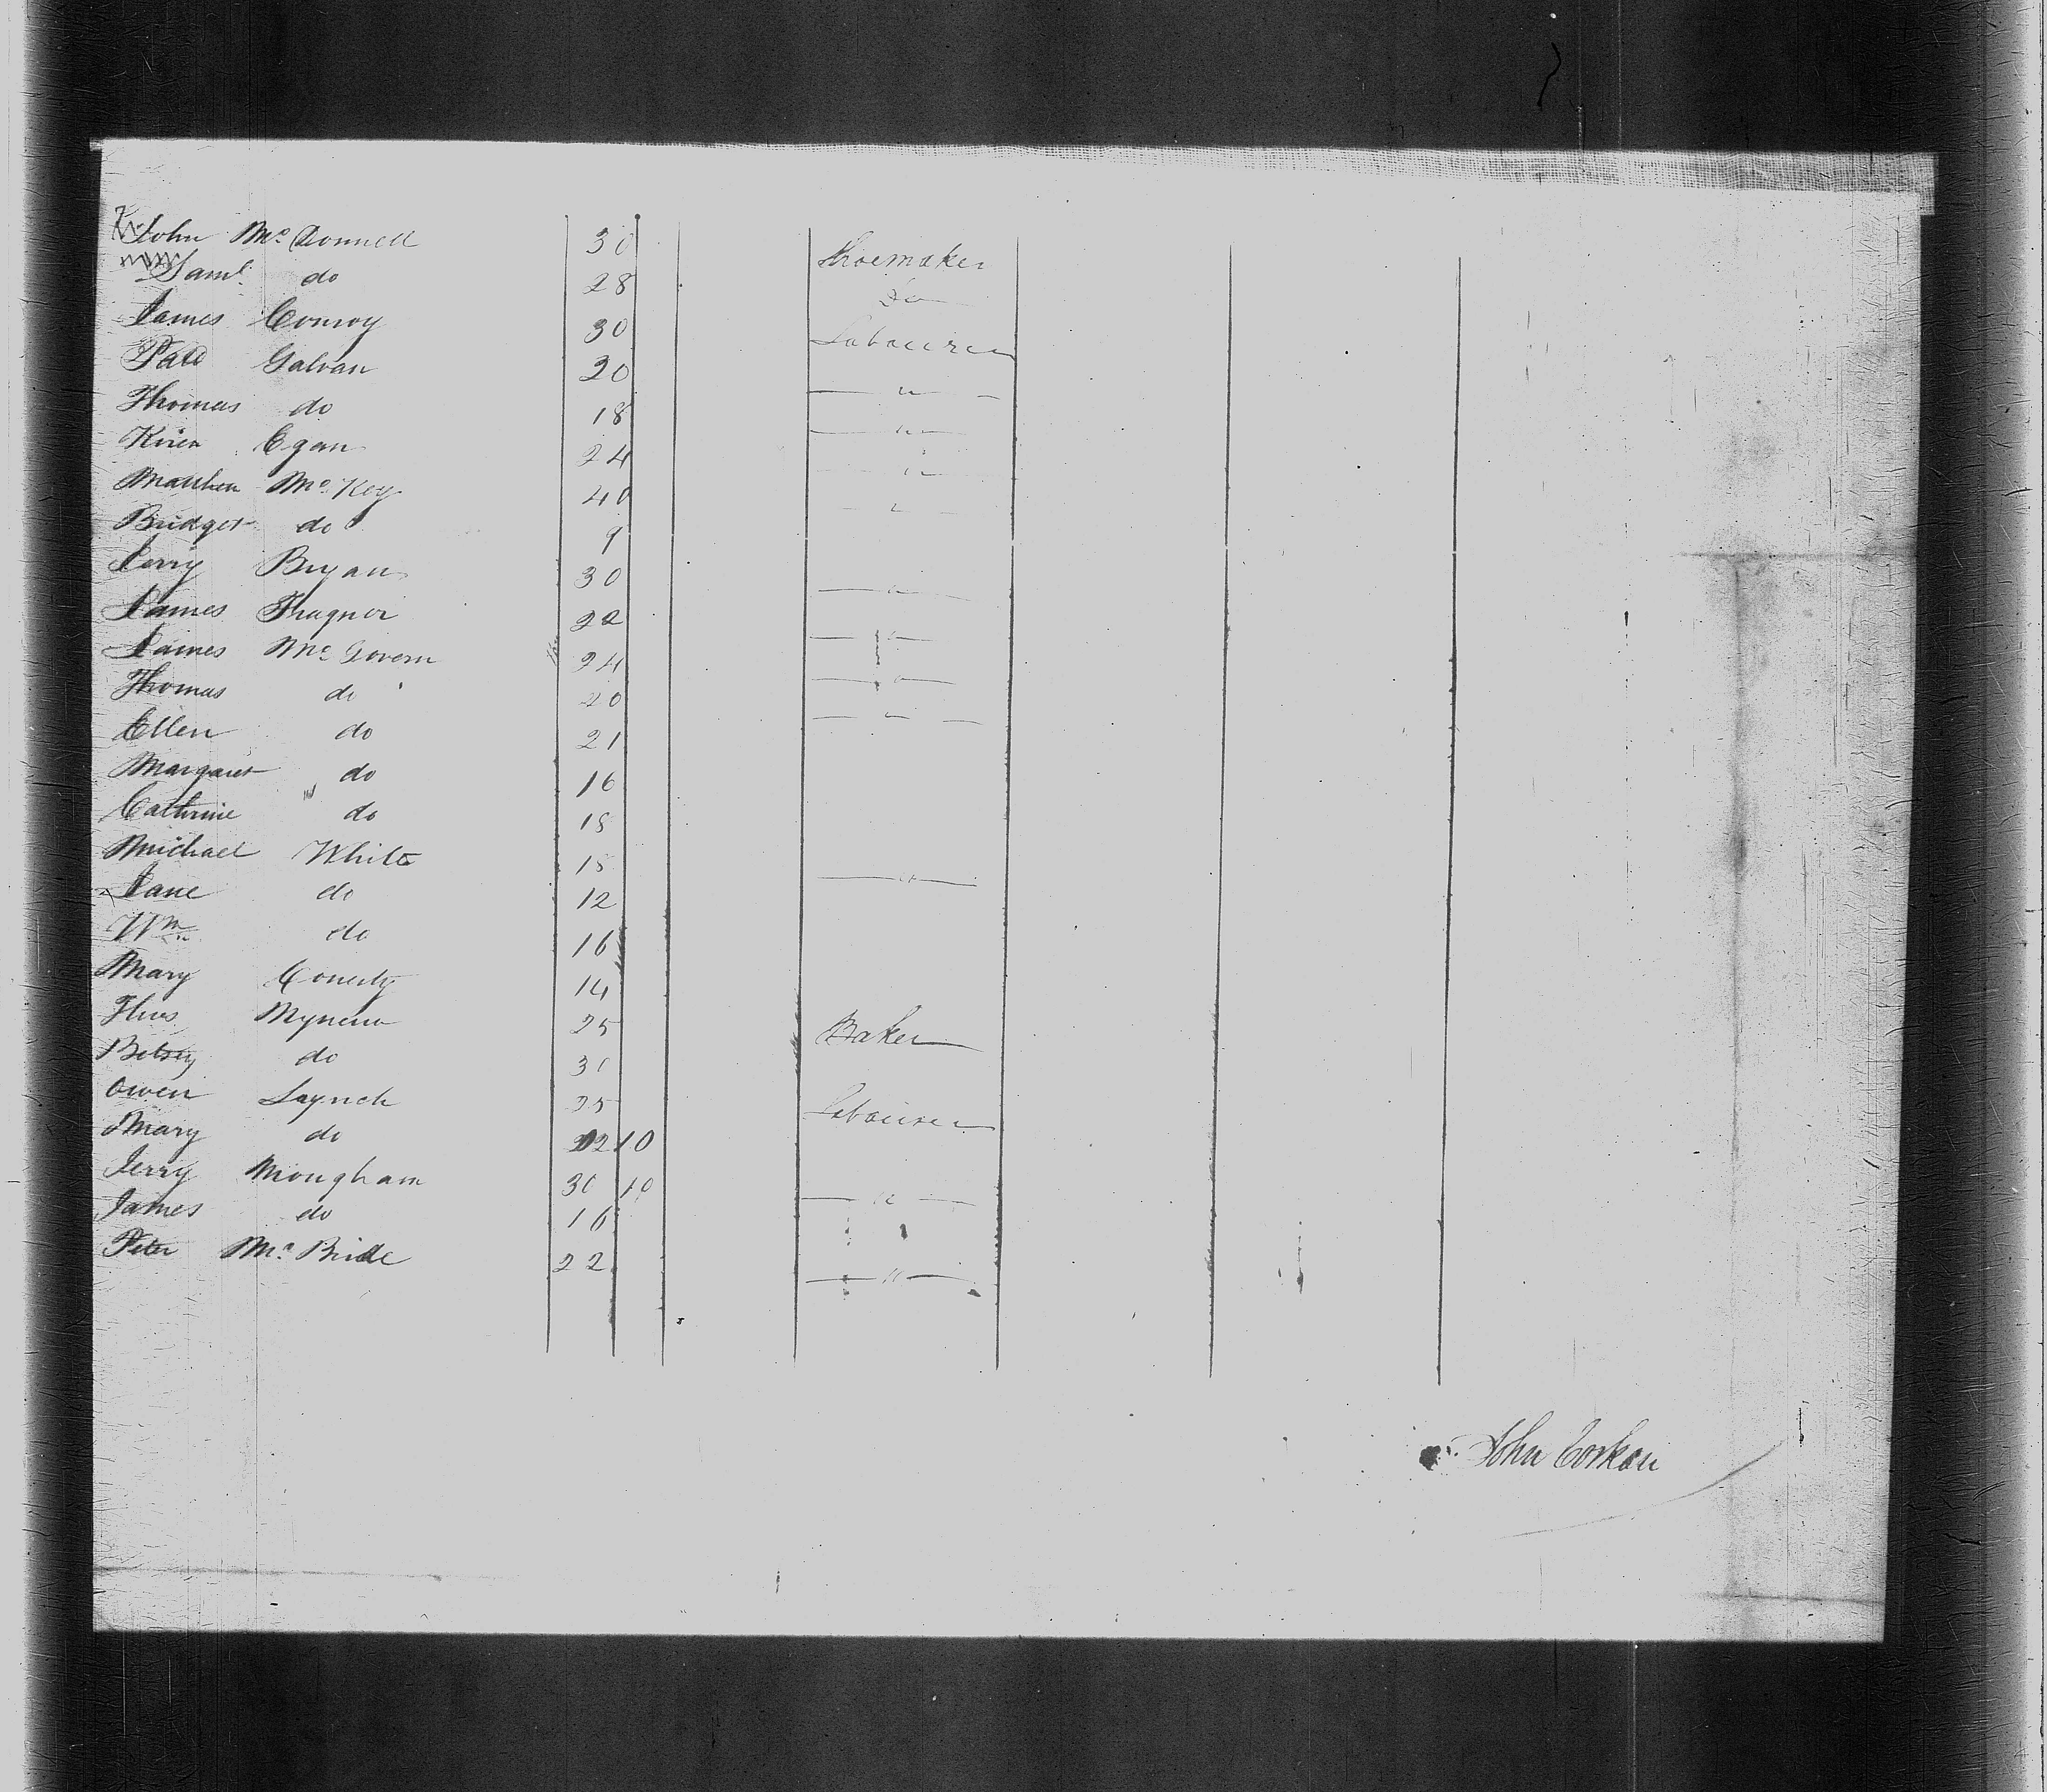 John Mc Donnell 30 Shoemaker
Saml. do 28 Do
James Conroy 30 Labourer
Patt Galvan 20 — " —
Thomas do 18 — " —
Kiren Egan 24 — " —
Matthew Mc Key 40 — " —
Bridget do 9
Jerry Bryan 30 — " —
James 22 — " —
James Mc Govern 24 — " —
Thomas do 20 — " —
Ellen do 21
Margaret do 16
Cathrine do 18
Michael White 15 — " —
Jane do 12
Wm do 16
Mary 14
Thos 25 Baker
Betsey do 30
Owen Laynch 25 Labourer
Mary do 10
Jerry Mougham 30 10 — " —
James do 16
Peter Mc Bride 22 — " —
John Corkan